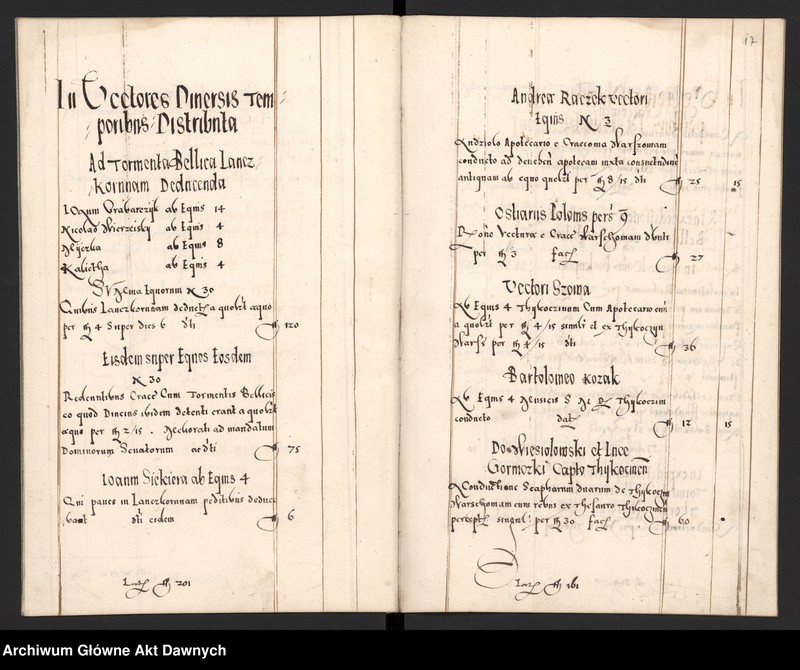 In Vectores Diuersis Tem
poribus Distributa
Ad Tormenta Bellica Lancz
kornnam Deducenda
Ioann Grabarczyk ab Equis 14
Nicolao Wierzeisky ab Equis 4
ab Equis 8
Kalietha ab Equis 4
Summa Equorum N 30
Quibus Lanczkornnam a quolt equo
per fl 4 Super dies 6 dti fl 120
Eisdem super Equos Eosdem
N 30
Redeuntibus Crace Cum Tormentis Bellicis
eo quod Diucius ibidem detenti erant a quolt
equo per fl 2/15. ad mandatum
Dominorum Senatorum ac dti fl 75
Ioanni Siekiera ab Equis 4
Qui panes in Lanczkornnam peditibus deduce
bant dti eidem fl 6
Lats fl 201
17
Andreae Raczek Vectori
Equis N 3
Andziolo Apotecario e Craccouia Warszouiam
conducto ad apotecam iuxta consuetudine
antiquam ab equo quolt per fl 8/15 dti fl 25 15
Ostiariis Polonis pers 9
Vecturae e Crace Warschouiam
per fl 3 fact fl 27
Vectori Szoma
Ab Equis 4 Thykoczinum Cum Apotecario
a quolt per fl 4/15 simili et ex Thykoczyn
Warss per fl 4/15 dti fl 36
Bartolomeo Kozak
Ab Equis 4 S Thykoczim
conducto dat fl 12 15
Do Wiesiolowski et Luce
Gorniczki Capto Thykocinen
A Conductione Scapharum duarum de Thykoczin
Warschouiam cum rebus ex Thesauro Thykocinen
singul per fl 30 fact fl 60
Lats fl 161
Archiwum Główne Akt Dawnych